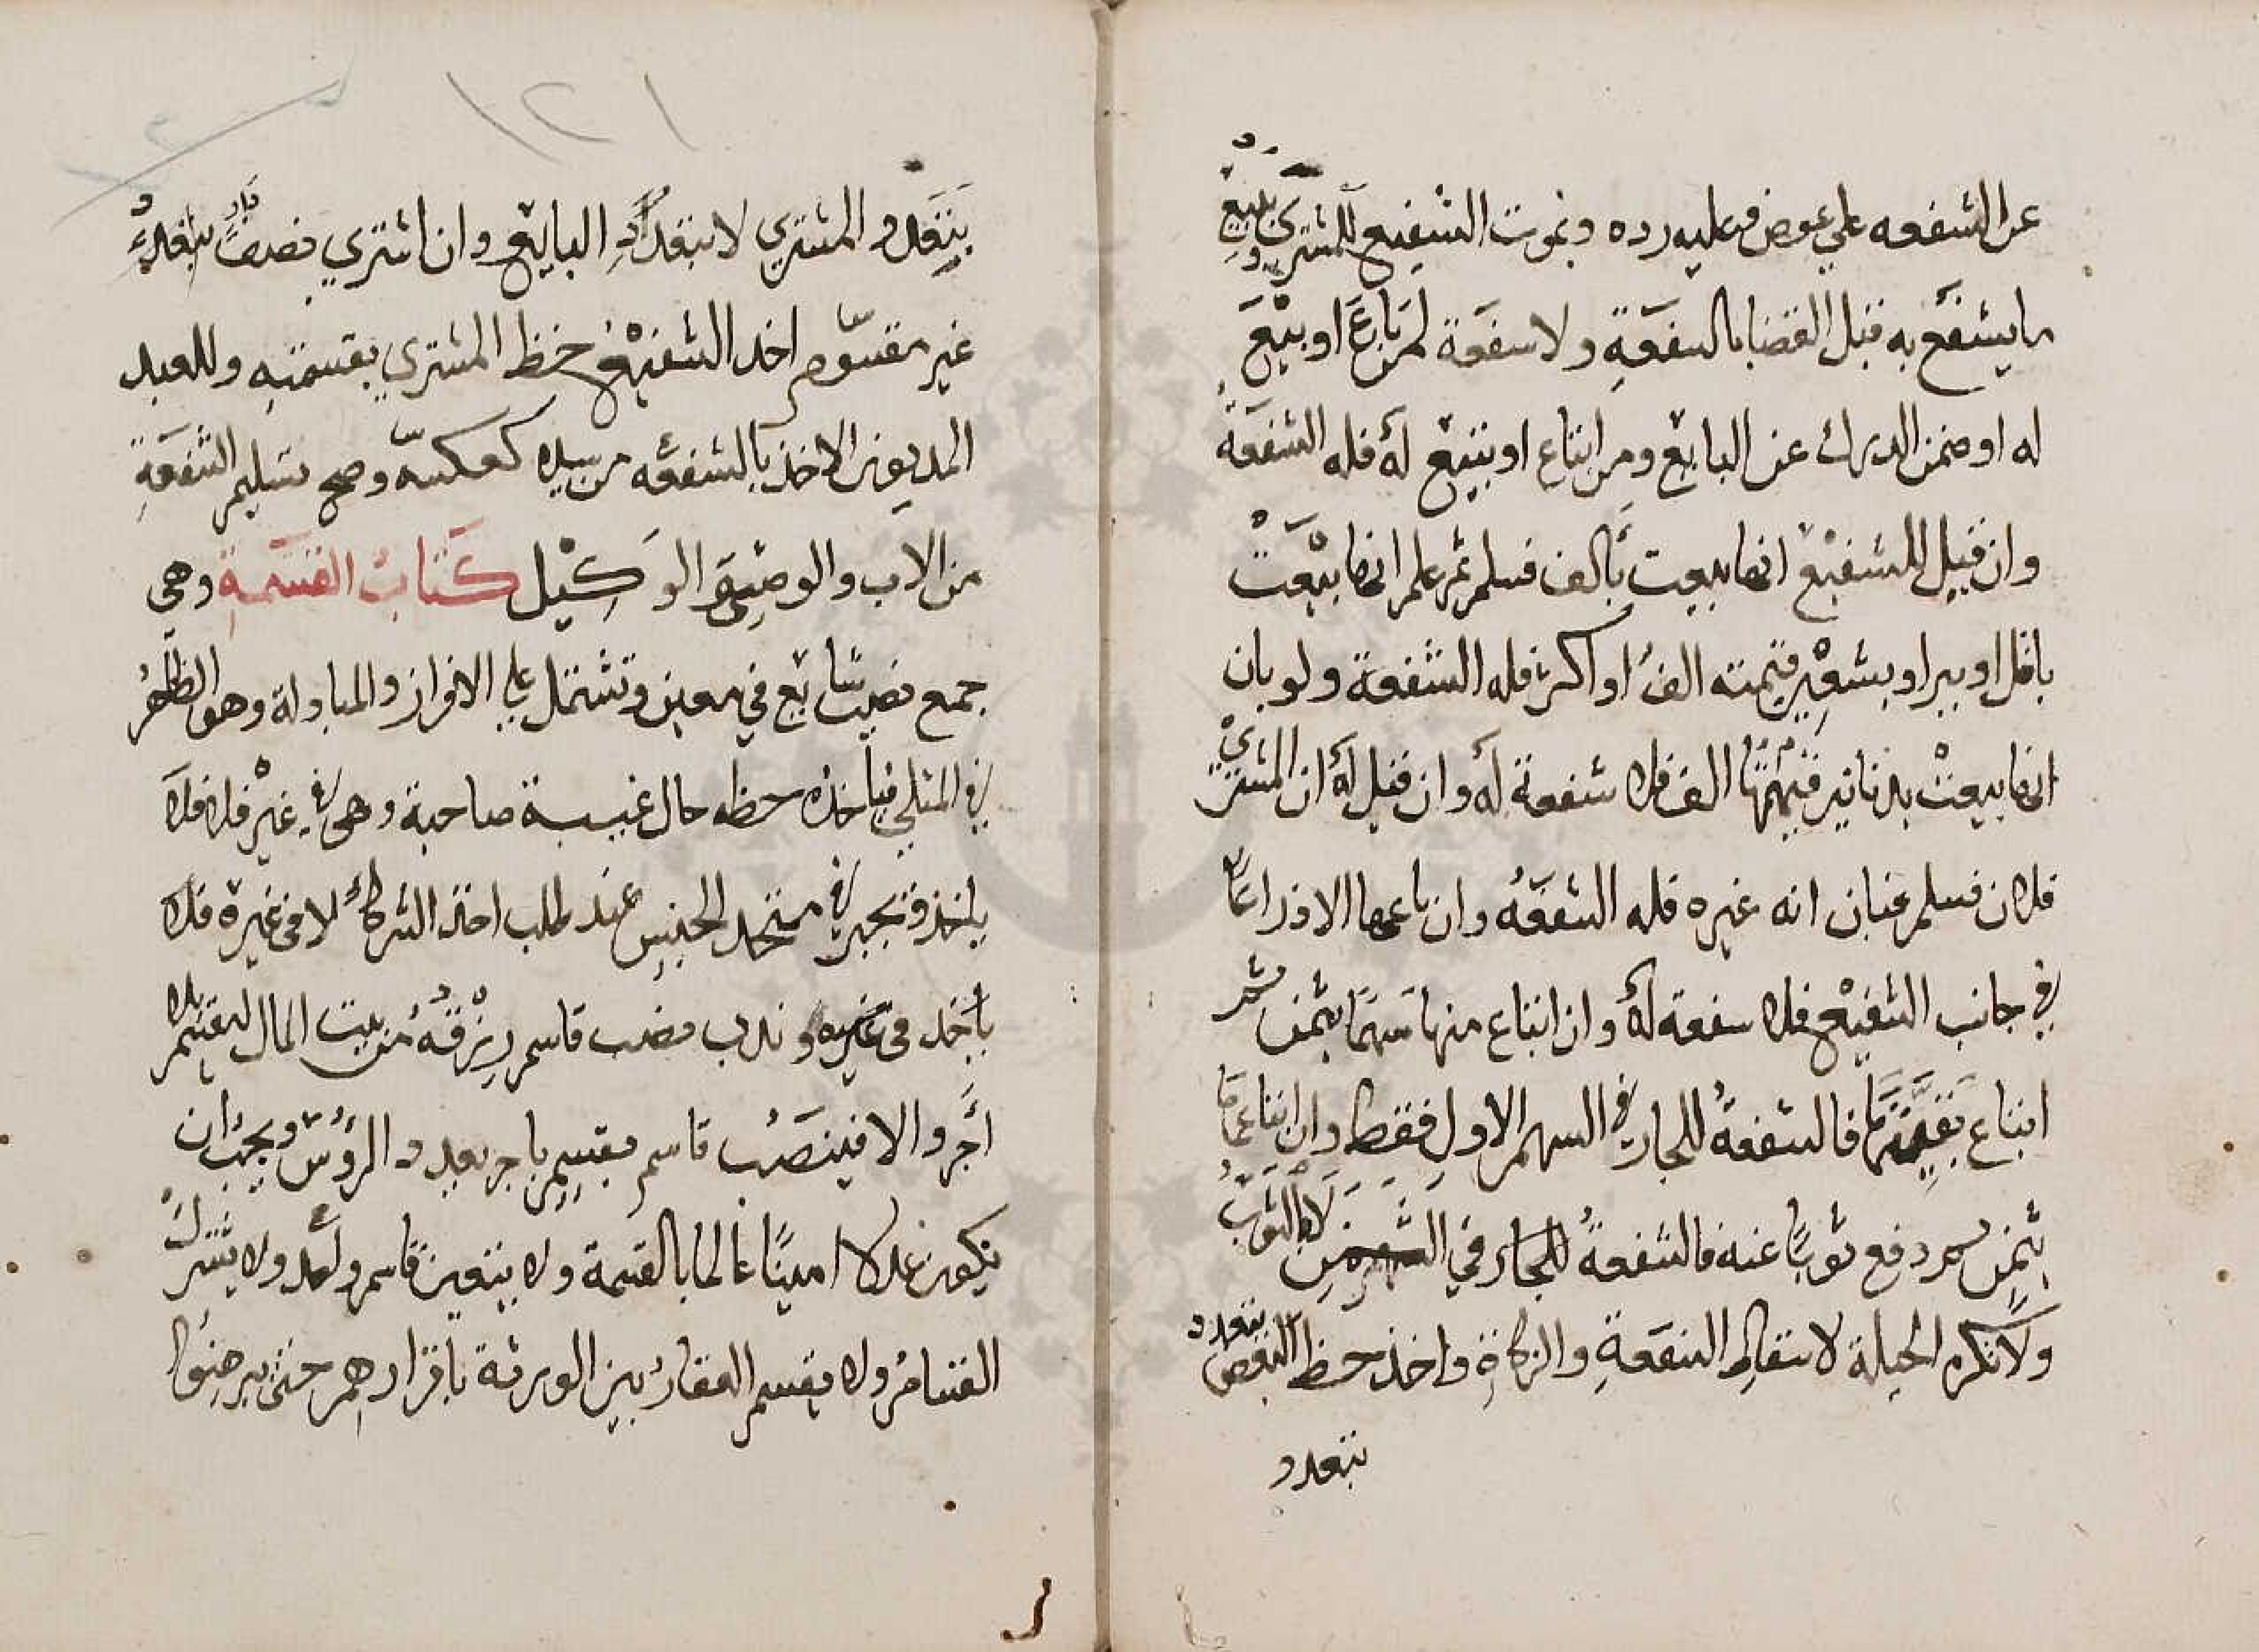 عن الشفعه علي عوض فعليه رده وبموت الشفيع لا المشتري وببيع
ما يشفع به قبل القضا بالشفعةِ ولا شفعة لمن باع او بيع
له او ضمن الدرك عن البايع ومن ابتاع او ابتيع له فله الشفعة
وان قيل للشفيع انها بيعت بالف فسلم ثم علم انها بيعت
باقل او ببر او بشعير قيمته الف او اكثر فله الشفعة ولو بان
انها بيعت بدنانير قيمتها الف فلا شفعة له وان قيل له ان المشتري
فلان فسلم فبان انه غيره فله الشفعة وان باعها الا ذراعا
في جانب الشفيع فلا شفعة له وان ابتاع منها سهما بثمن ثم
ابتاع بقيتها فالشفعة للجار في السهم الاول فقط وان ابتاعها
بثمن ثم دفع ثوبا عنه فالشفعة للجار في الثمن لا بالثوب
ولا تكره الحيلة لاسقاط الشفعةِ والزكاةِ واخذ حظ البعض بتعدد
بتعدد
١٢١
بتعدد المشتري لا بتعدد البايع وان اشتري نصف دار
غير مقسوم اخذ الشفيع حظ المشتري بقسمته وللعبد
المديون الاخذ بالشفعه من سيده كعكسه وصح تسليم الشفعةِ
من الاب والوصي والوكيل كتاب القسمةِ وهي
جمع نصيب شايع في معين وتشتمل علي الافراز والمبادلة وهو الظاهر
في المثلي فياخذ حظه حال غيبة صاحبة وهي في غيره فلا
ياخذ وتجبر في متحد الجنس عند طلب احد الشركا لا في غيره فلا
ياخذ في غيره وندب نصب قاسم رزقه من بيت المال ليقسم بلا
اجر والا فينصب قاسم يقسم باجر بعدد الروس ويجب ان
يكون عدلا امينا عالما بالقسمة ولا يتعين قاسم واحد ولا يشترك
القسام ولا يقسم العقار بين الورثة باقرارهم حتي يبرهنوا